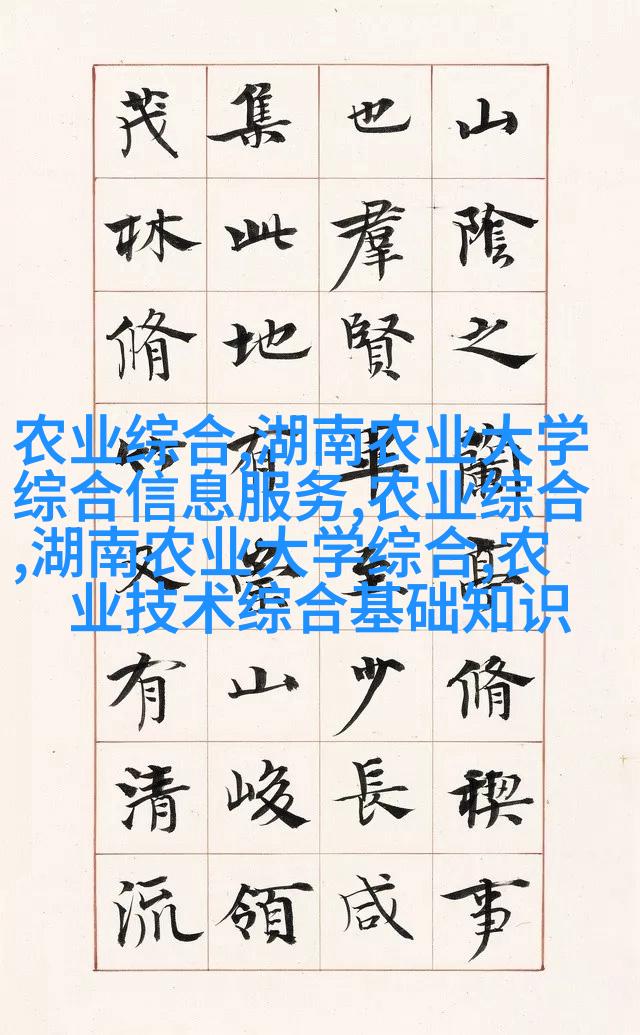 山陰之蘭亭脩稧事
也羣賢畢至少長咸
集此地有崇山峻領
茂林脩竹又有清流
农业综合,湖南农业大学
综合信息服务,农业综合
,湖南农业大学综合,农
业技术综合基础知识